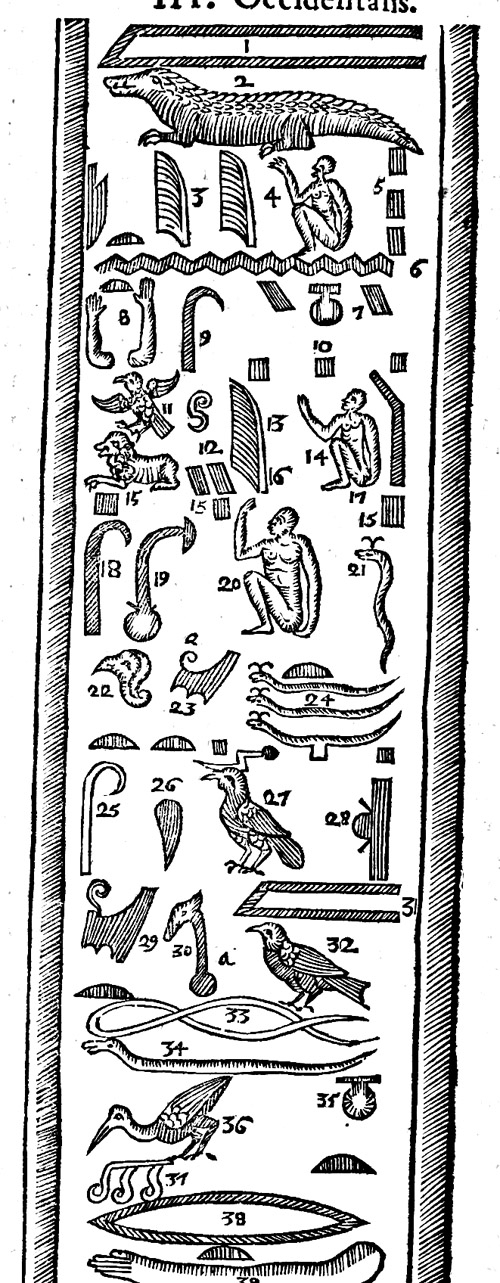 III. Occidentalis.
1
2
3 4 5
6
8 9 7
10
11 12 13 14
16
15 15 17 15
18 19 20 21
a
22 23 24
25 26 27 28
3
29 30 a 32
33
34
35
36
37
38
39